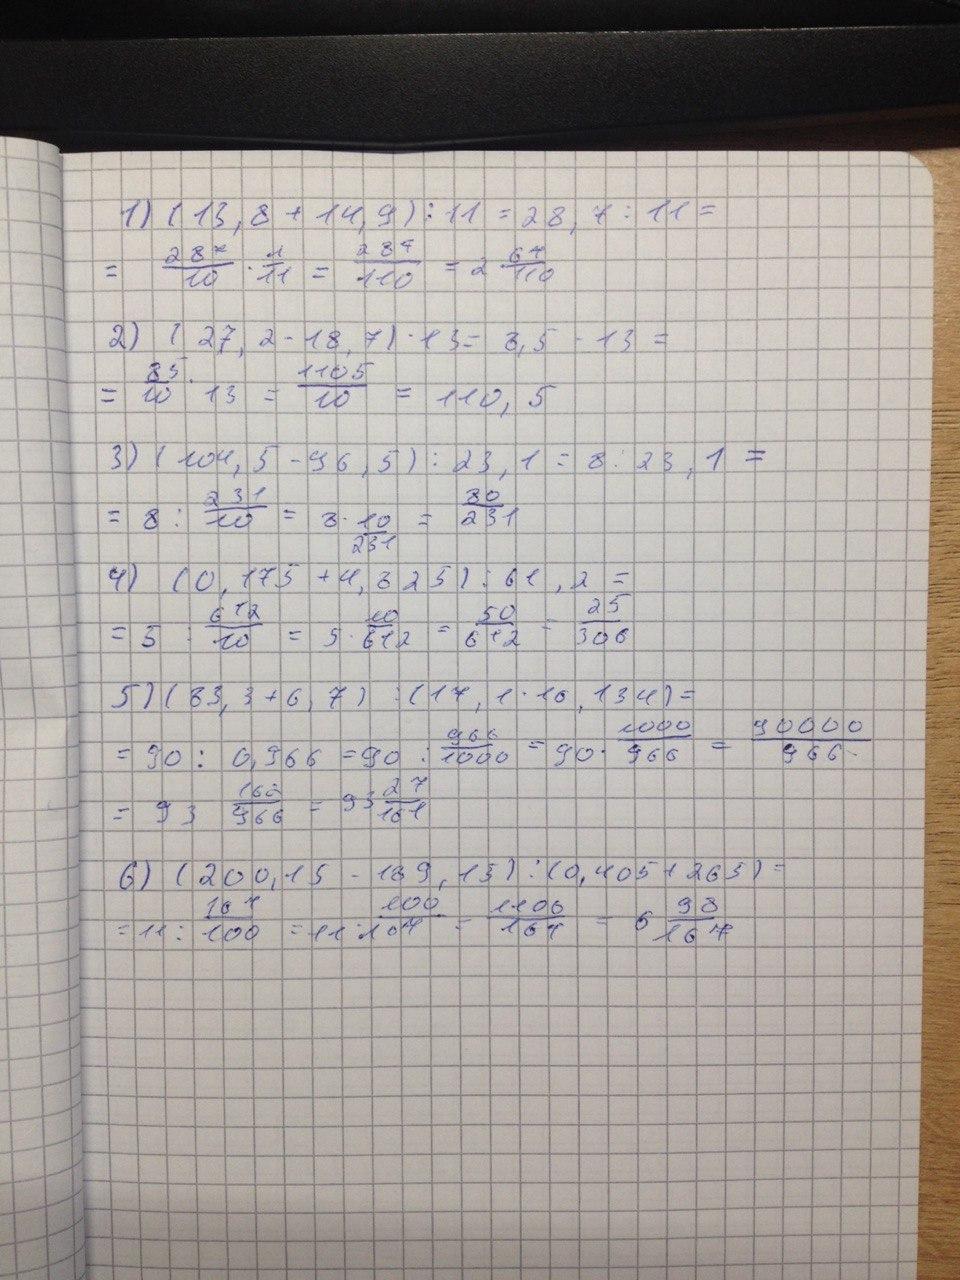 1) (13,8 + 14,9) : 11 = 28,7 : 11 =
= 287/10 · 1/11 = 287/110 = 2 67/110
2) (27,2 - 18,7) · 13 = 8,5 · 13 =
= 85/10 · 13 = 1105/10 = 110,5
3) (104,5 - 96,5) : 23,1 = 8 : 23,1 =
= 8 : 231/10 = 8 · 10/231 = 80/231
4) (0,175 + 4,825) : 61,2 =
= 5 : 612/10 = 5 · 10/612 = 50/612 = 25/306
5) (83,3 + 6,7) : (17,1 - 16,134) =
= 90 : 0,966 = 90 : 966/1000 = 90 · 1000/966 = 90000/966
= 93 162/966 = 93 27/161
6) (200,15 - 189,15) : (0,405 + 265) =
= 11 : 167/100 = 11 · 100/167 = 1100/167 = 6 98/167